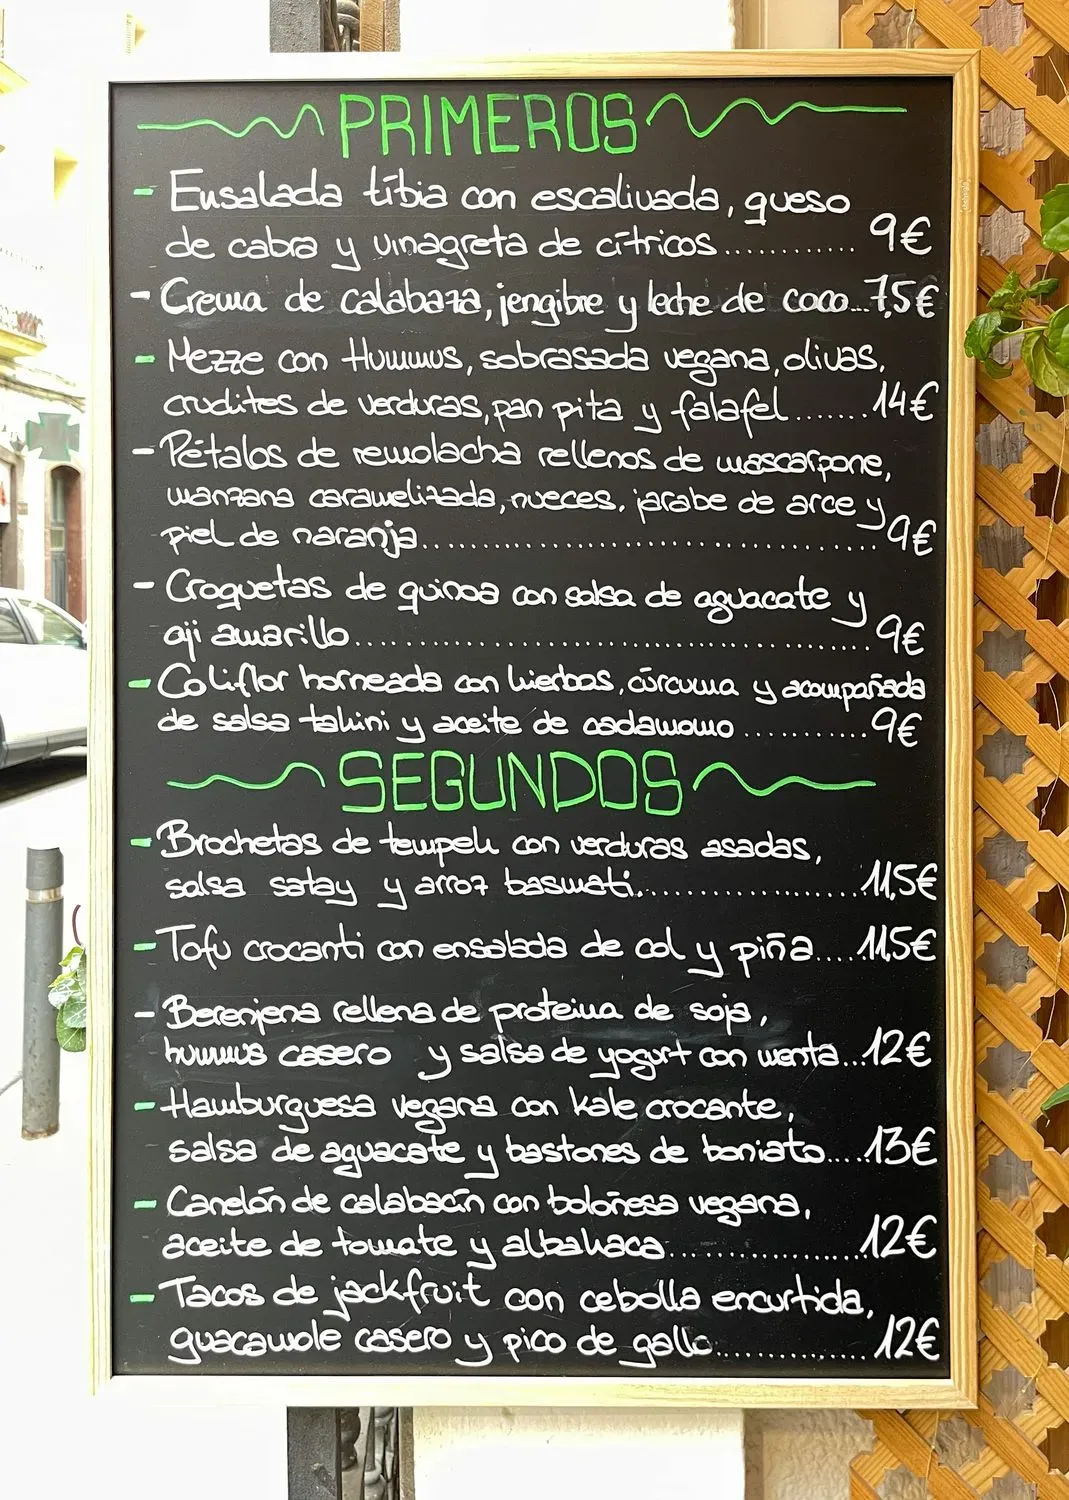 PRIMEROS
- Ensalada tíbia con escalivada, queso
de cabra y vinagreta de cítricos........... 9€
- Crema de calabaza, jengibre y leche de coco...7,5€
- Mezze con Hummus, sobrasada vegana, olivas,
crudites de verduras, pan pita y falafel.......14€
- Pétalos de remolacha rellenos de mascarpone,
manzana caramelizada, nueces, jarabe de arce y
piel de naranja........................................9€
- Croquetas de quinoa con salsa de aguacate y
aji amarillo............................................9€
- Coliflor horneada con hierbas, cúrcuma y acompañada
de salsa tahini y aceite de cadamomo...........9€
SEGUNDOS
- Brochetas de tempeh con verduras asadas,
salsa satay y arroz basmati....................11,5€
- Tofu crocanti con ensalada de col y piña....11,5€
- Berenjena rellena de proteina de soja,
hummus casero y salsa de yogurt con menta...12€
- Hamburguesa vegana con kale crocante,
salsa de aguacate y bastones de boniato....13€
- Canelón de calabacín con boloñesa vegana,
aceite de tomate y albahaca..................12€
- Tacos de jackfruit con cebolla encurtida,
guacamole casero y pico de gallo..............12€